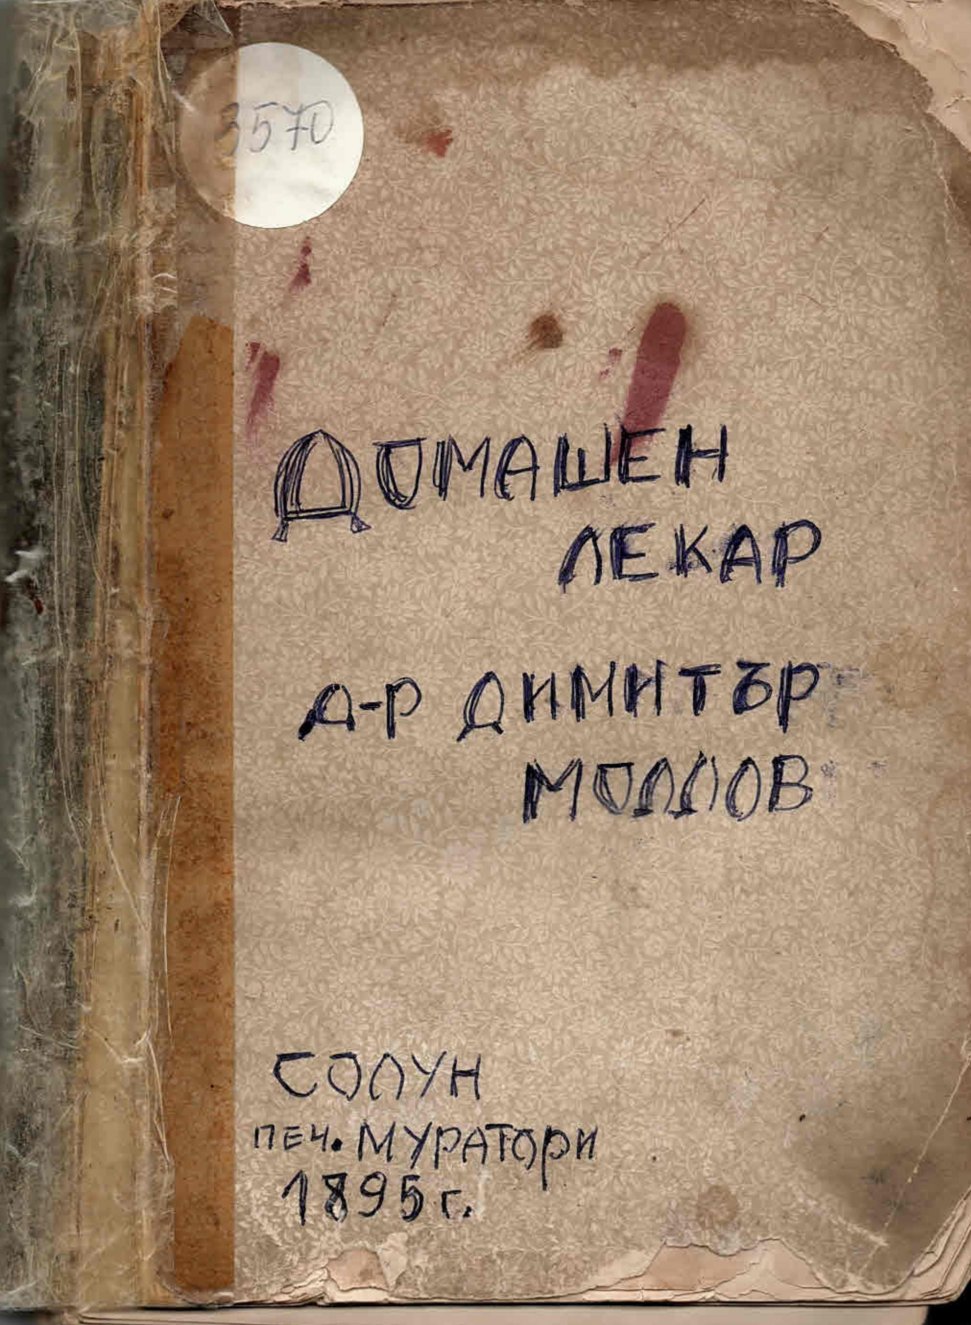 3570
ДОМАШЕН
ЛЕКАР
Д-Р ДИМИТЪР
МОЛЛОВ
СОЛУН
ПЕЧ. МУРАТОРИ
1895 г.